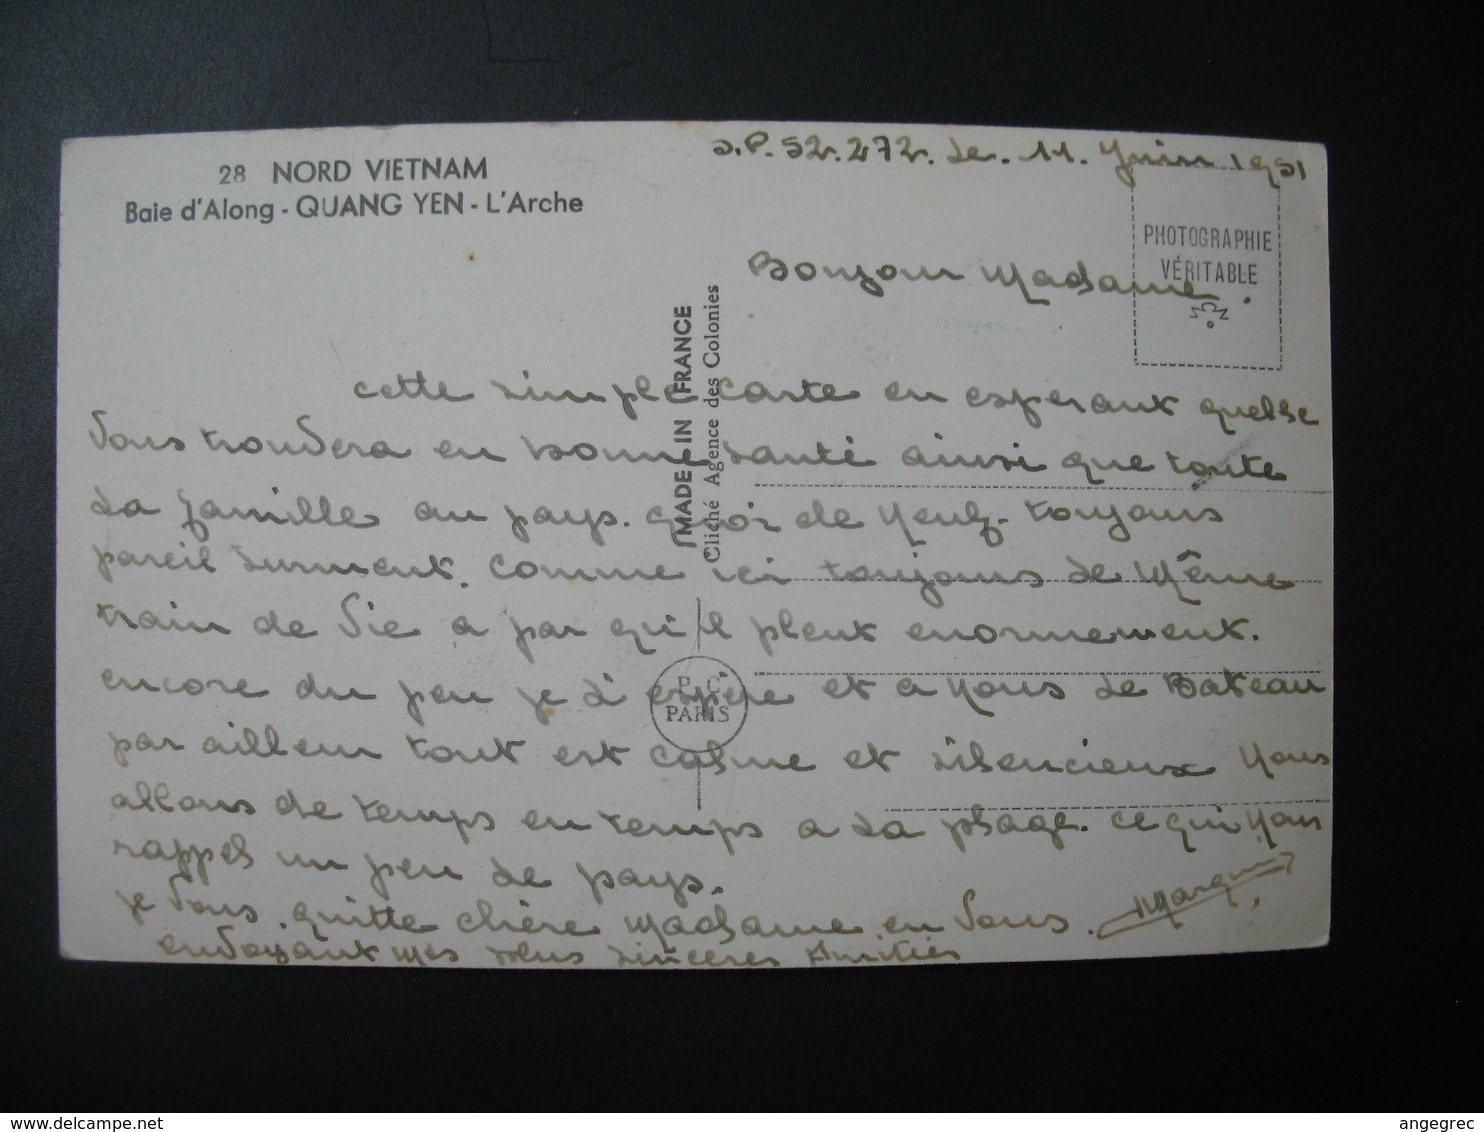 28 NORD VIETNAM
Baie d'Along - QUANG YEN - L'Arche
S.P. 52.272. Le. 11. Juin 1951
PHOTOGRAPHIE
VÉRITABLE
MADE IN FRANCE
Cliché Agence des Colonies
P. C
PARIS
Bonjour Madame.
cette simple carte en esperant quelle
Vous troudera en bonne santé ainsi que toute
La famille au pays. quoi de Neuf. toujours
pareil surment. comme ici toujours de Même
train de Vie a par qu'il pleut enormement.
encore du peu je l'espère et a Nous Le Bateau
par ailleur tout est calme et silencieux Nous
allons de temps en temps a La plage. ce qui Nous
rappel un peu Le pays.
je Vous quitte chère Madame en Vous
envoyant mes plus sinceres Amitiés
www.delcampe.net
angegrec